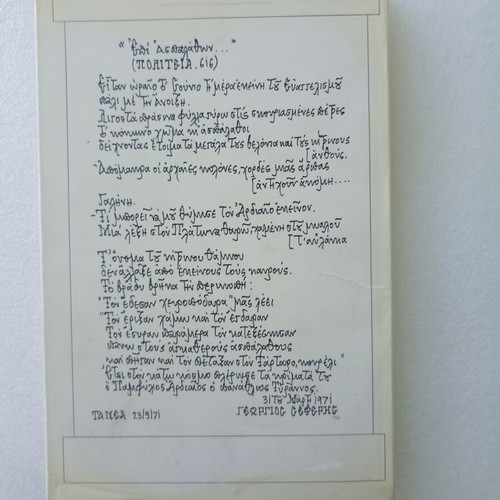 “Ἐπὶ Ἀσπαλάθων...”
(ΠΟΛΙΤΕΙΑ, 616)
Εἶταν ὡραῖο τὸ Σούνιο τὴ μέρα ἐκείνη τοῦ Εὐαγγελισμοῦ
πάλι μὲ τὴν ἄνοιξη.
Λιγοστὰ πράσινα φύλλα γύρω στὶς σκουριασμένες πέτρες
τὸ κόκκινο χῶμα κι ἀσπάλαθοι
δείχνοντας ἕτοιμα τὰ μεγάλα τους βελόνια καὶ τοὺς κίτρινους
[ἀνθούς.
Ἀπόμακρα οἱ ἀρχαῖες κολόνες, χορδὲς μιᾶς ἅρπας
[ἀντηχοῦν ἀκόμη....
Γαλήνη.
-Τί μπορεῖ νὰ μοῦ θύμισε τὸν Ἀρδιαῖο ἐκεῖνον.
Μιὰ λέξη στὸν Πλάτωνα θαρρῶ, χαμένη στοῦ μυαλοῦ
[τ' αὐλάκια
Τ' ὄνομα τοῦ κίτρινου θάμνου
δὲν ἄλλαξε ἀπὸ ἐκείνους τοὺς καιρούς.
Τὸ βράδυ βρῆκα τὴν περικοπή:
“Τὸν ἔδεσαν χειροπόδαρα” μᾶς λέει
“Τὸν ἔριξαν χάμω καὶ τὸν ἔγδαραν
τὸν ἔσυραν παράμερα τὸν καταξέσκισαν
πάνω στοὺς ἀγκαθεροὺς ἀσπάλαθους
καὶ πῆγαν καὶ τὸν πέταξαν στὸν Τάρταρο, κουρέλι”
Ἔτσι στὸν κάτω κόσμο πλέρωνε τὰ κρίματά του
ὁ Παμφύλιος Ἀρδιαῖος ὁ πανάθλιος Τύραννος.
31 τοῦ Μάρτη 1971
ΤΑ ΝΕΑ 23/9/71 ΓΕΩΡΓΙΟΣ ΣΕΦΕΡΗΣ